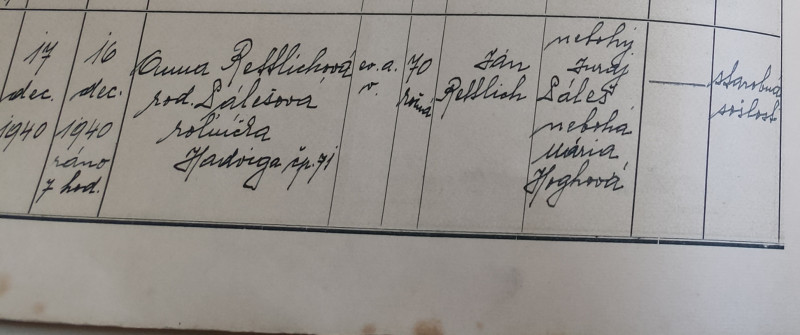 17
dec.
1940
16
dec.
1940
ráno
7 hod.
Anna Rettlichová
rod. Pálešova
roľníčka
Hadviga čp. 71
ev. a.
v.
70
ročná
Ján
Rettlich
nebohý
Juraj
Páleš
nebohá
Mária
Hoghová
starobná
sošlosť